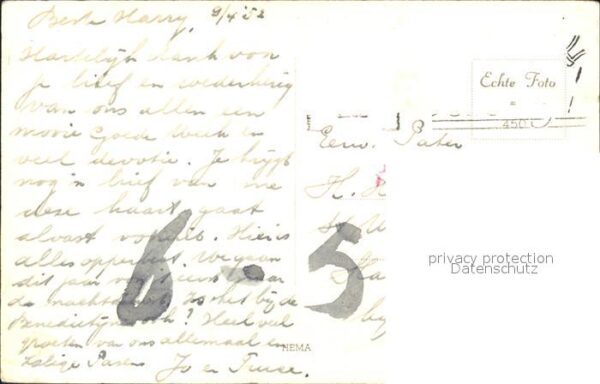 Beste Harry, 9/4 '52
Hartelijk dank voor
je brief en wederkerig
van ons allen een
mooie Goede Week en
veel devotie. Je krijgt
nog 'n brief van me
deze kaart gaat
alvast vooruit. Hier is
alles opperbest. We gaan
dit jaar voor 't eerst naar
de nachtmis, is het bij de
Benedictijn ook? Heel veel
groeten van ons allemaal en
Zalige Pasen Jo en
Echte Foto
=
450
Eerw. Pater
H.
6 - 5
NEMA
privacy protection
Datenschutz